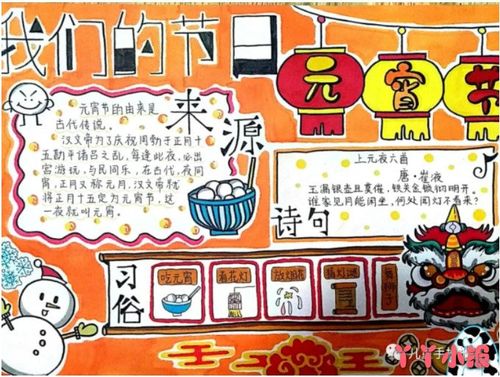 我们的节日
元宵节
来源
元宵节的由来是
古代传说。
汉文帝为了庆祝周勃于正月十
五勘平诸吕之乱，每逢此夜，必出
宫游玩，与民同乐，在古代，夜同
宵，正月又称元月，汉文帝就
将正月十五定为元宵节，这
一夜就叫元宵。
上元夜六首
唐·崔液
玉漏银壶且莫催，铁关金锁彻明开。
谁家见月能闲坐，何处闻灯不看来？
诗句
习俗
吃元宵
看花灯
放烟花
猜灯谜
舞狮子
丫丫小报